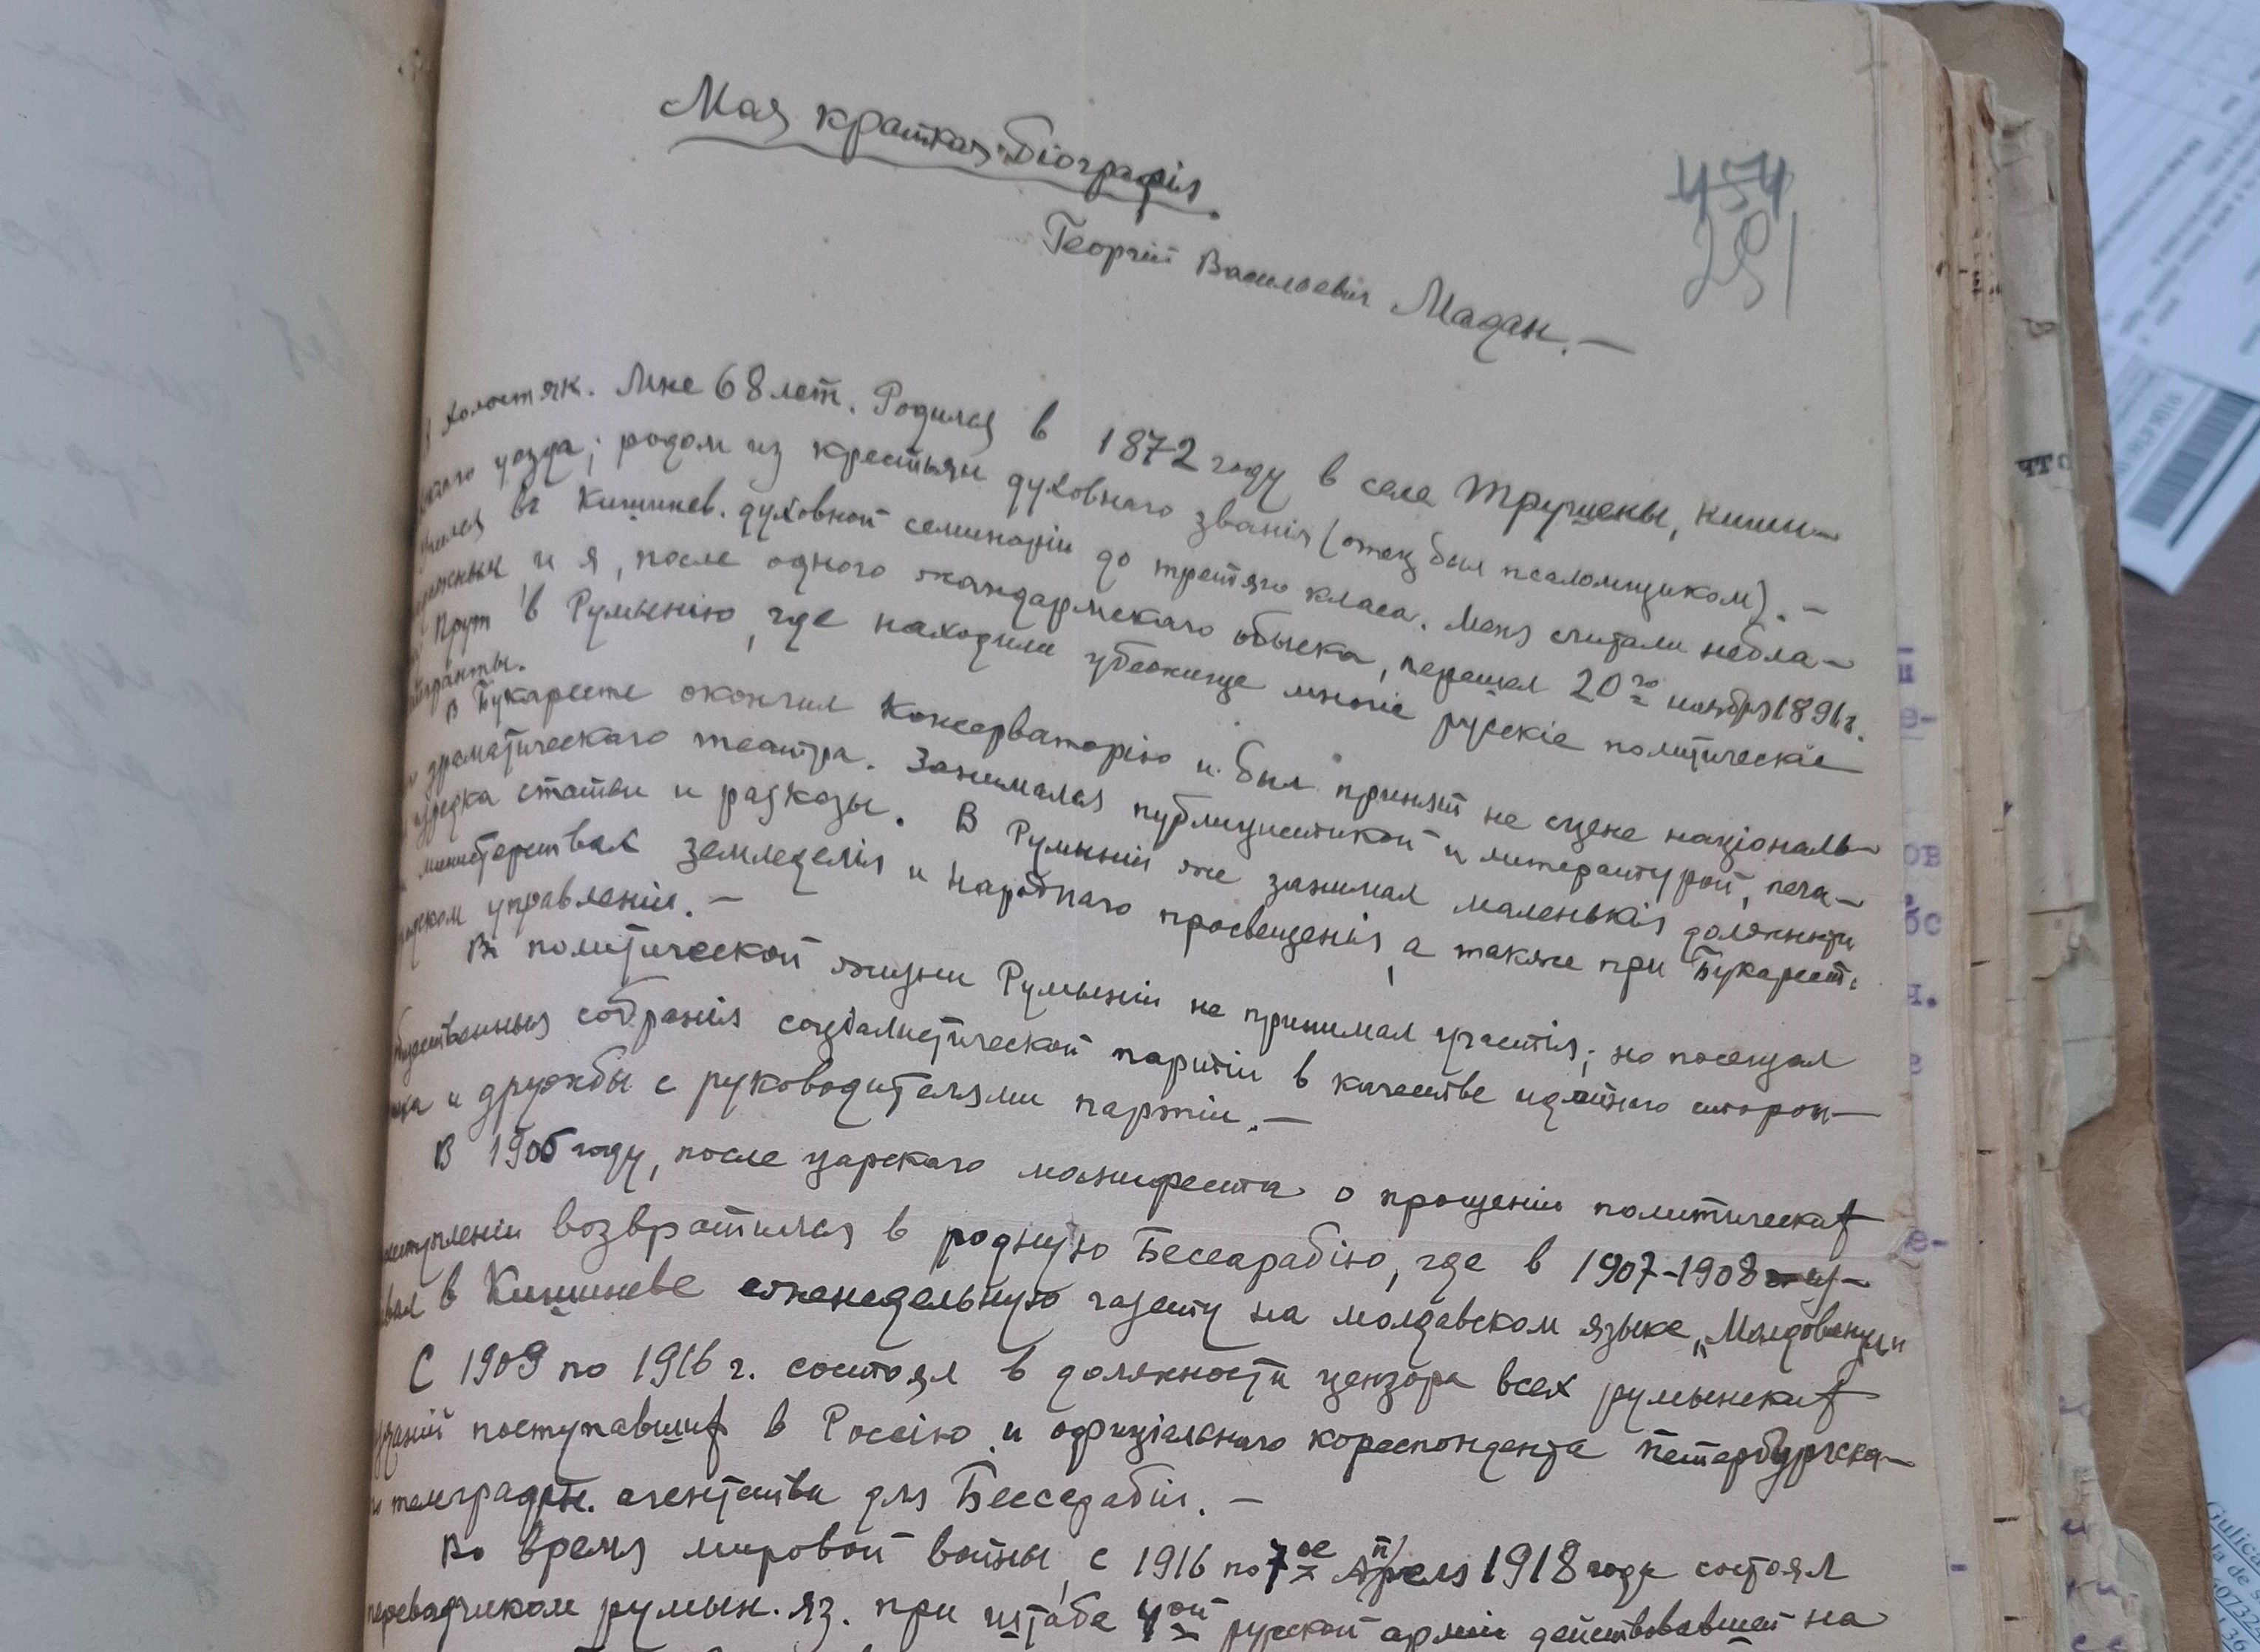 Моя краткая біографія
454
291
Георгій Васильевич Мадан. —
Я холостяк. Мне 68 лет. Родился в 1872 году в селе Трушены, Киши-
уезда; родом из крестьян духовнаго званія (отец был псаломщиком). —
въ Кишинев. духовной семинаріи до третьяго класа. Меня считали небла-
и я, после одного жандармскаго обыска, перешел 20го ноября 1891 г.
Прут в Румынію, где находили убежище многіе русскіе политическіе
В Букаресте окончил консерваторію и был принят на сцене національ-
драматическаго театра. Занимался публицистикой и литературой, печа-
изредка статьи и разказы. В Румыніи же занимал маленькія должности
министерствах земледелія и народнаго просвещенія, а также при Букарест.
управленіи. —
Въ политической жизни Румыніи не принимал участія; но посещал
собранія соціалистической партіи в качестве идейнаго сторон-
ника и дружбы с руководителями партіи. —
В 1905 году, после царскаго манифеста о прощеніи политических
возвратился в родную Бессарабію, где в 1907-1908
в Кишиневе еженедельную газету на молдавском языке „Молдованул"
С 1909 по 1916 г. состоял в должности цензора всех румынских
изданій поступавших в Россію и официальнаго кореспондента Петербургска-
телеграфн. агентства для Бессарабіи. —
Во время мировой войны, с 1916 по 7ое Апреля 1918 года состоял
переводчиком румын. яз. при штабе 4ой русской арміи действовавшей на
что